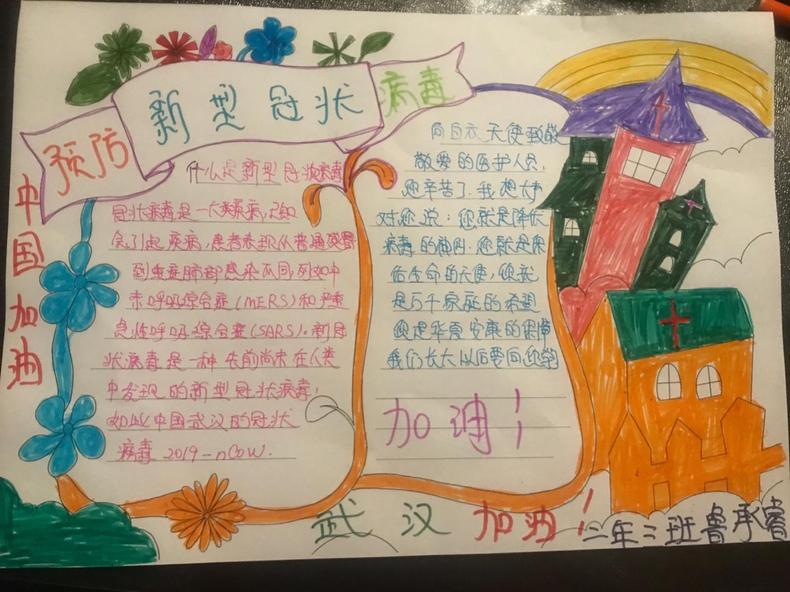 预防
新型冠状
病毒
中国加油
什么是新型冠状病毒
冠状病毒是一大类病毒，已知
会引起疾病，患者表现从普通感冒
到重症肺部感染不同，例如中
东呼吸综合症（MERS）和严重
急性呼吸综合症（SARS）。新冠
状病毒是一种先前尚未在人类
中发现的新型冠状病毒，
如此中国武汉的冠状
病毒2019-nCOV.
向白衣天使致敬
敬爱的医护人员，
您辛苦了，我想大声
对您说：您就是降伏
病毒的
您就是
生命的天使，您就
是万千家庭的希望
您是华夏安康的保障
我们长大以后要向您学
加油！
武汉加油！
二年二班鲁承睿